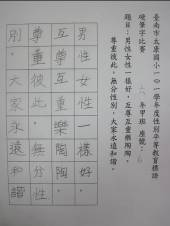 臺南市永康國小一0一學年度性別平等教育標語
硬筆字比賽 六年甲班 座號：6
題目：男性女性一樣好，互尊互重樂陶陶，
尊重彼此，無分性別，大家永遠和諧。
男性女性一樣好，
互尊互重樂陶陶，
尊重彼此，無分性
別，大家永遠和諧